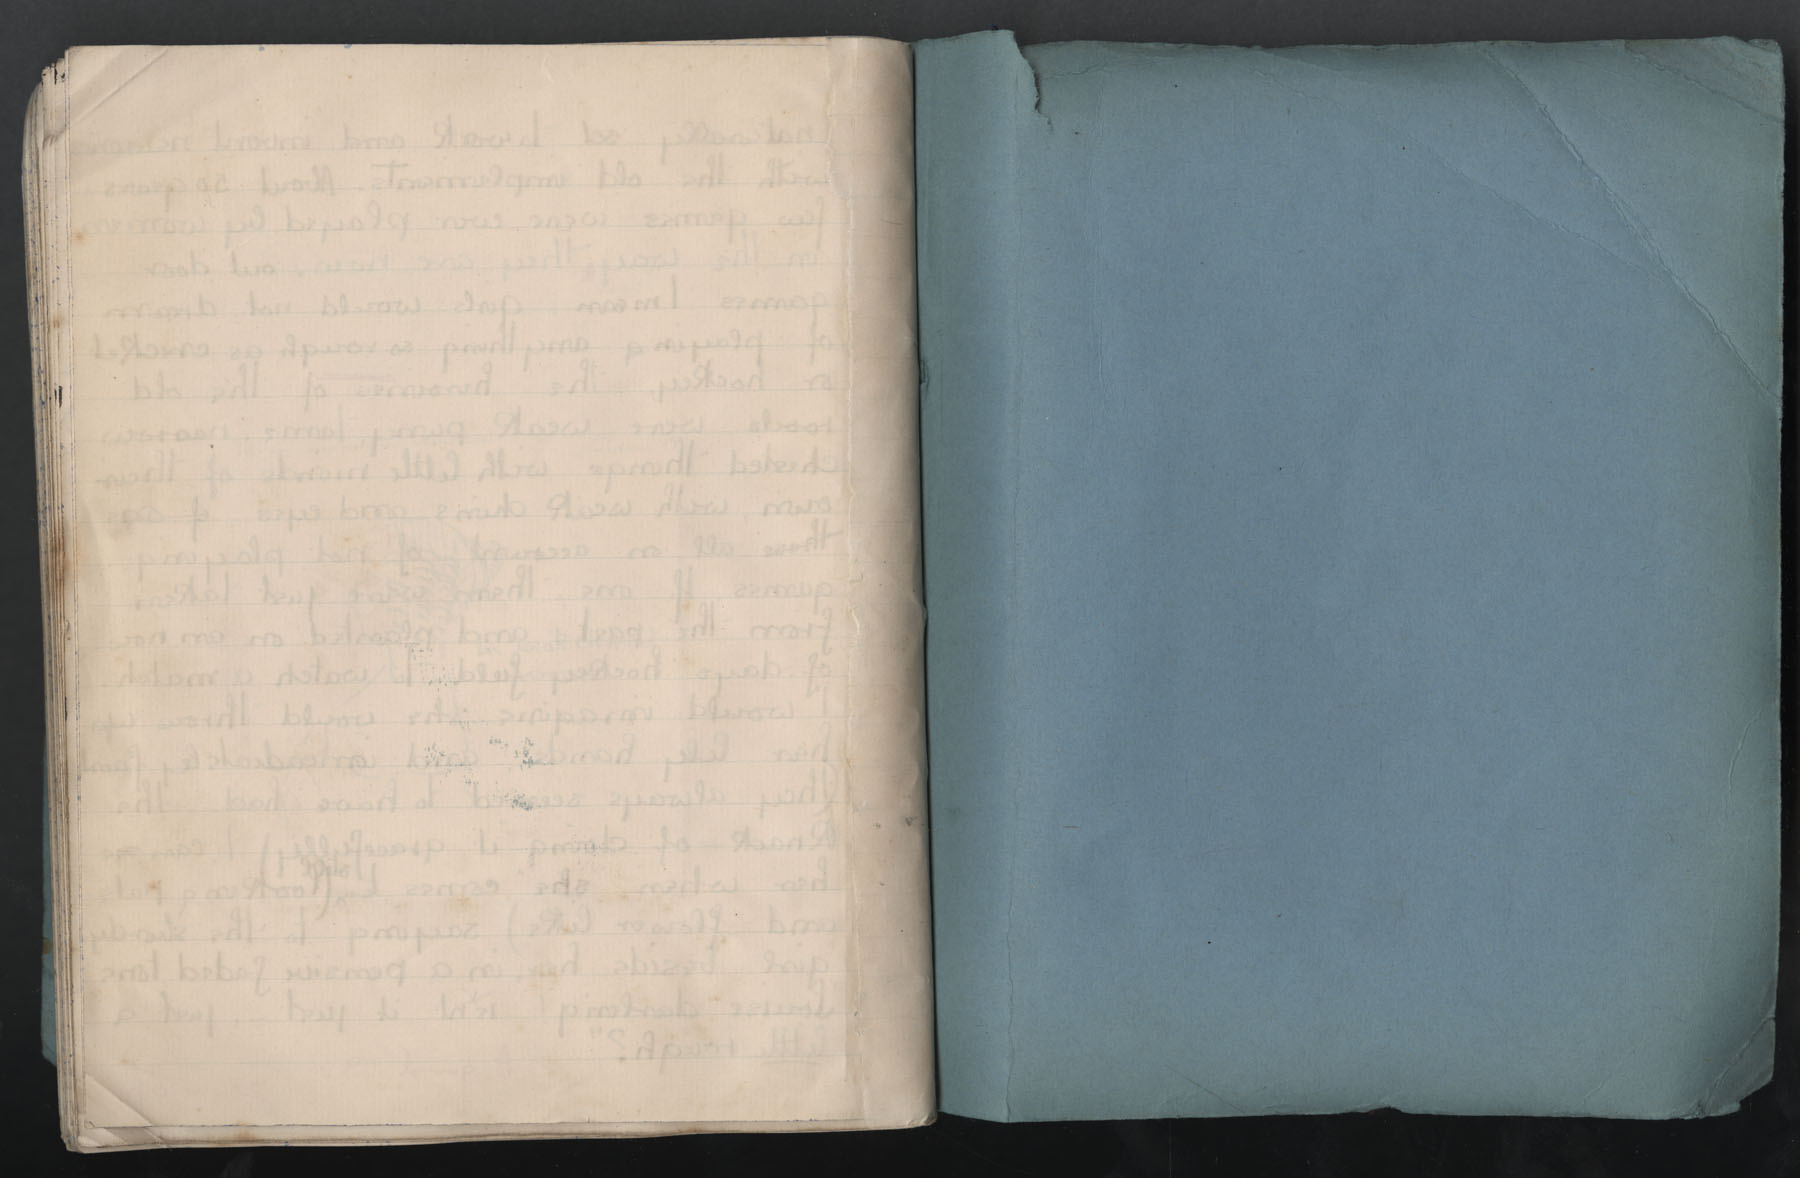 naturally set to work and invent
with the old implements. About 50 years
few games were ever played by women
in the way they are now, out door
games I mean. Girls would not dream
of playing anything so rough as cricket
or hockey, the heroines of the old
were weak puny things narrow
chested things with little minds of their
own, with weak chins and eyes
these all on account of not playing
games. If one them were just taken
from the past and planted on an now
of days hockey field to watch a match
I would imagine she would throw up
her lily hands and faint
(they always seemed to have had the
knack of doing it gracefully) I can see
her when she comes to (looking pale
and flower like) saying to the sturdy
girl beside her in a pensive faded tone
"Louise darling isn't it just - just a
little rough?"